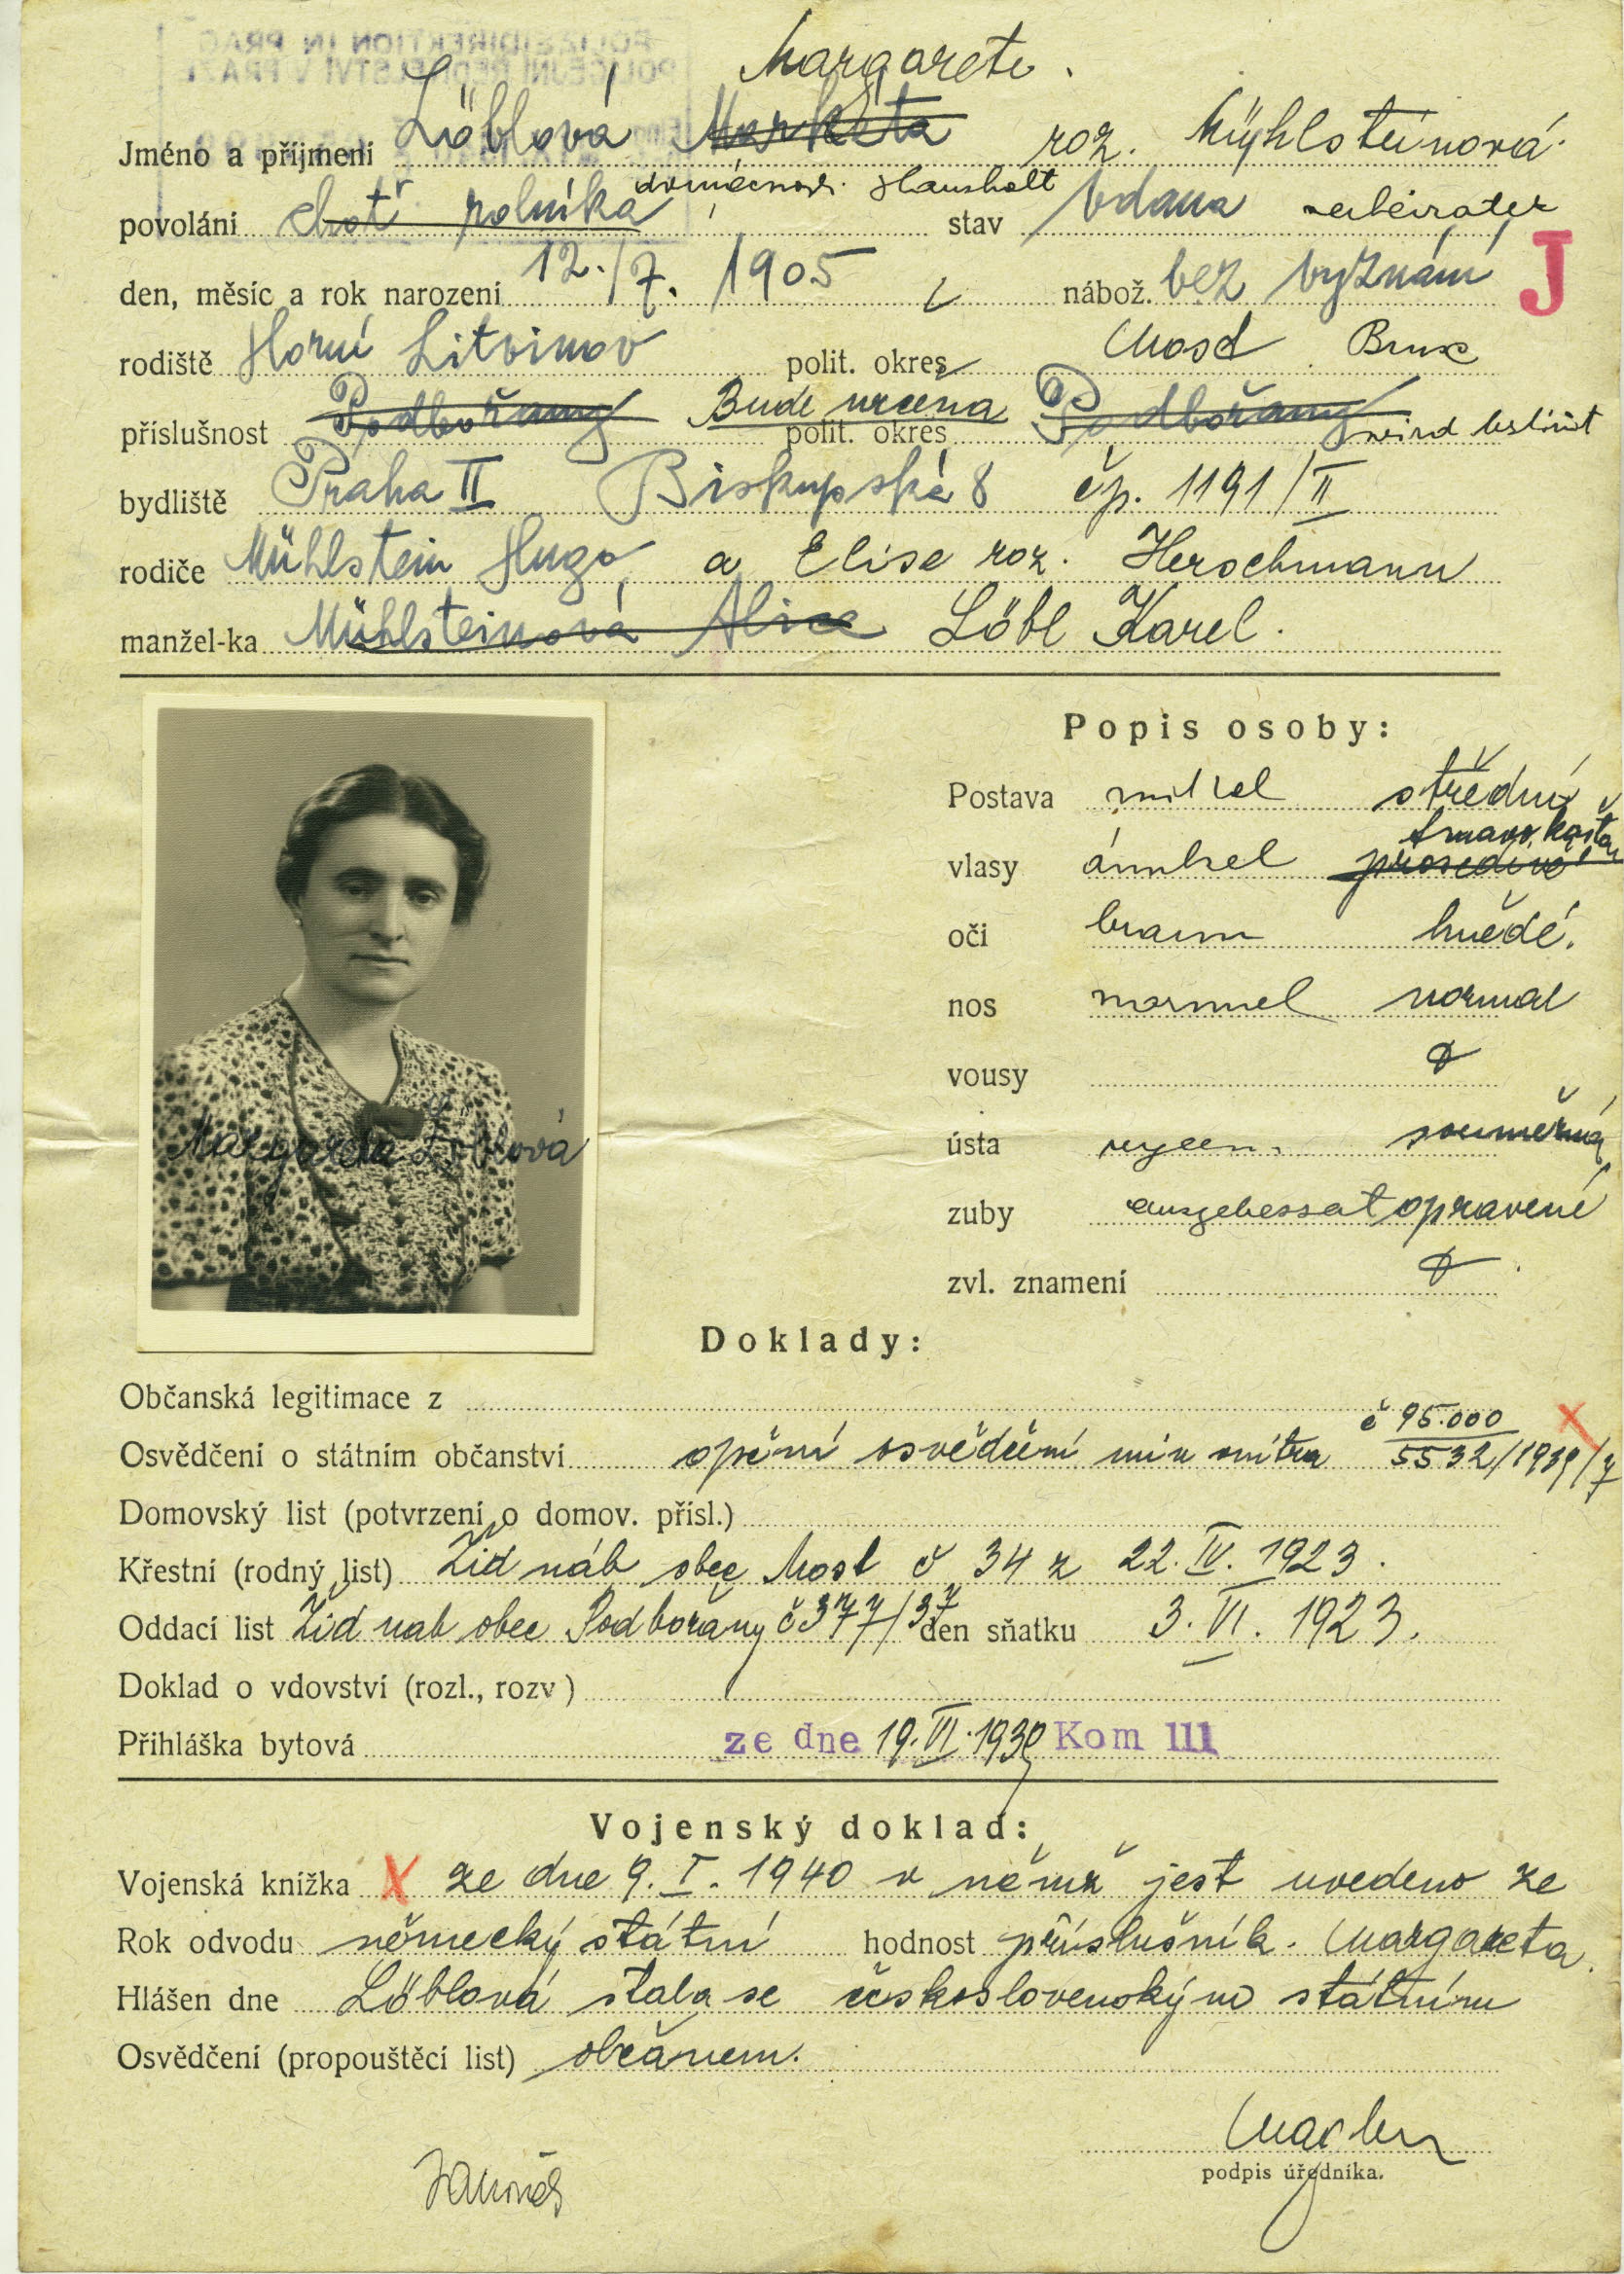 POLIZEIDIREKTION IN PRAG
POLICEJNÍ ŘEDITELSTVÍ V PRAZE
Margarete.
Jméno a příjmení Löblová Markéta roz. Mühlsteinová.
domácnost. Haushalt
povolání choť rolníka stav vdana verheiratet
den, měsíc a rok narození 12./7. 1905 nábož. bez vyznání J
rodiště Horní Litvinov polit. okres Most Brüx
příslušnost Podbořany Bude určena polit. okres Podbořany wird bestimt
bydliště Praha II Biskupská 8 čp. 1191/II
rodiče Mühlstein Hugo a Elise roz. Herschmann
manžel-ka Mühlsteinová Alice Löbl Karel.
Popis osoby:
Postava mittel střední
tmavo kaštan
vlasy dunkel prosedivé
oči braun hnědé.
nos normal normal
vousy
Margareta Löblová
ústa souměrná
zuby ausgebessert opravené
zvl. znamení
Doklady:
Občanská legitimace z
č 95.000
Osvědčení o státním občanství min vnitra 5532/1939/7
Domovský list (potvrzení o domov. přísl.)
Křestní (rodný list) Žid náb obec Most č 34 z 22. IV. 1923.
Oddací list Žid nab obec Podbořany č 377/37 den sňatku 3. VI. 1923.
Doklad o vdovství (rozl., rozv)
Přihláška bytová ze dne 19. VI. 1939 Kom III
Vojenský doklad:
Vojenská knížka X ze dne 9. I. 1940 v němž jest uvedeno že
Rok odvodu německý státní hodnost příslušník. Margareta
Hlášen dne Löblová stala se československým státním
Osvědčení (propouštěcí list) občanem.
podpis úředníka.